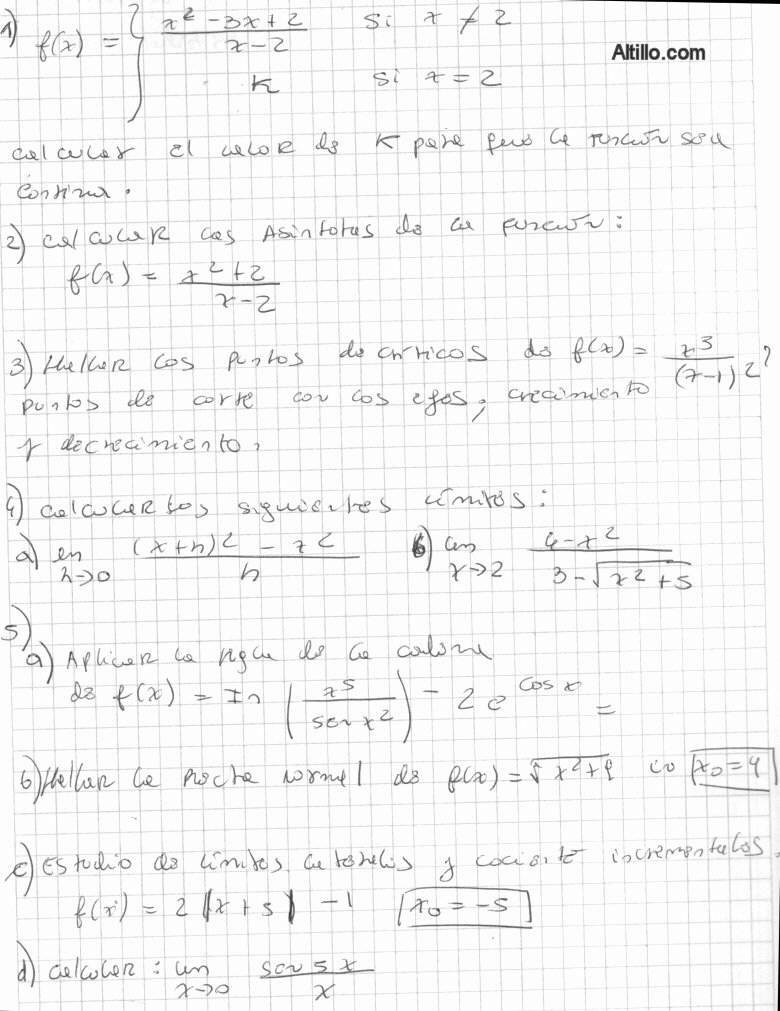 1) f(x) = { x² - 3x + 2 / x - 2 si x ≠ 2
Altillo.com
k si x = 2
calcular el valor de K para que la función sea
continua.
2) calcular las Asintotas de la función:
f(x) = x² + 2 / x - 2
3) Hallar los puntos de críticos de f(x) = x³ / (x-1)2?
puntos de corte con los ejes, crecimiento
y decrecimiento,
4) calcular los siguientes límites:
a) lím h→0 (x+h)2 - x2 / h b) lím x→2 4 - x2 / 3 - √x2+5
5)
a) Aplicar la regla de la cadena
de f(x) = In (x5 / sen x2) - 2 e cos x =
b) Hallar la recta normal de f(x) = √x2+9 x0 = 4
c) Estudio de límites laterales y cociente incrementales.
f(x) = 2 |x + 5| - 1 x0 = -5
d) calcular: lím x→0 sen 5x / x